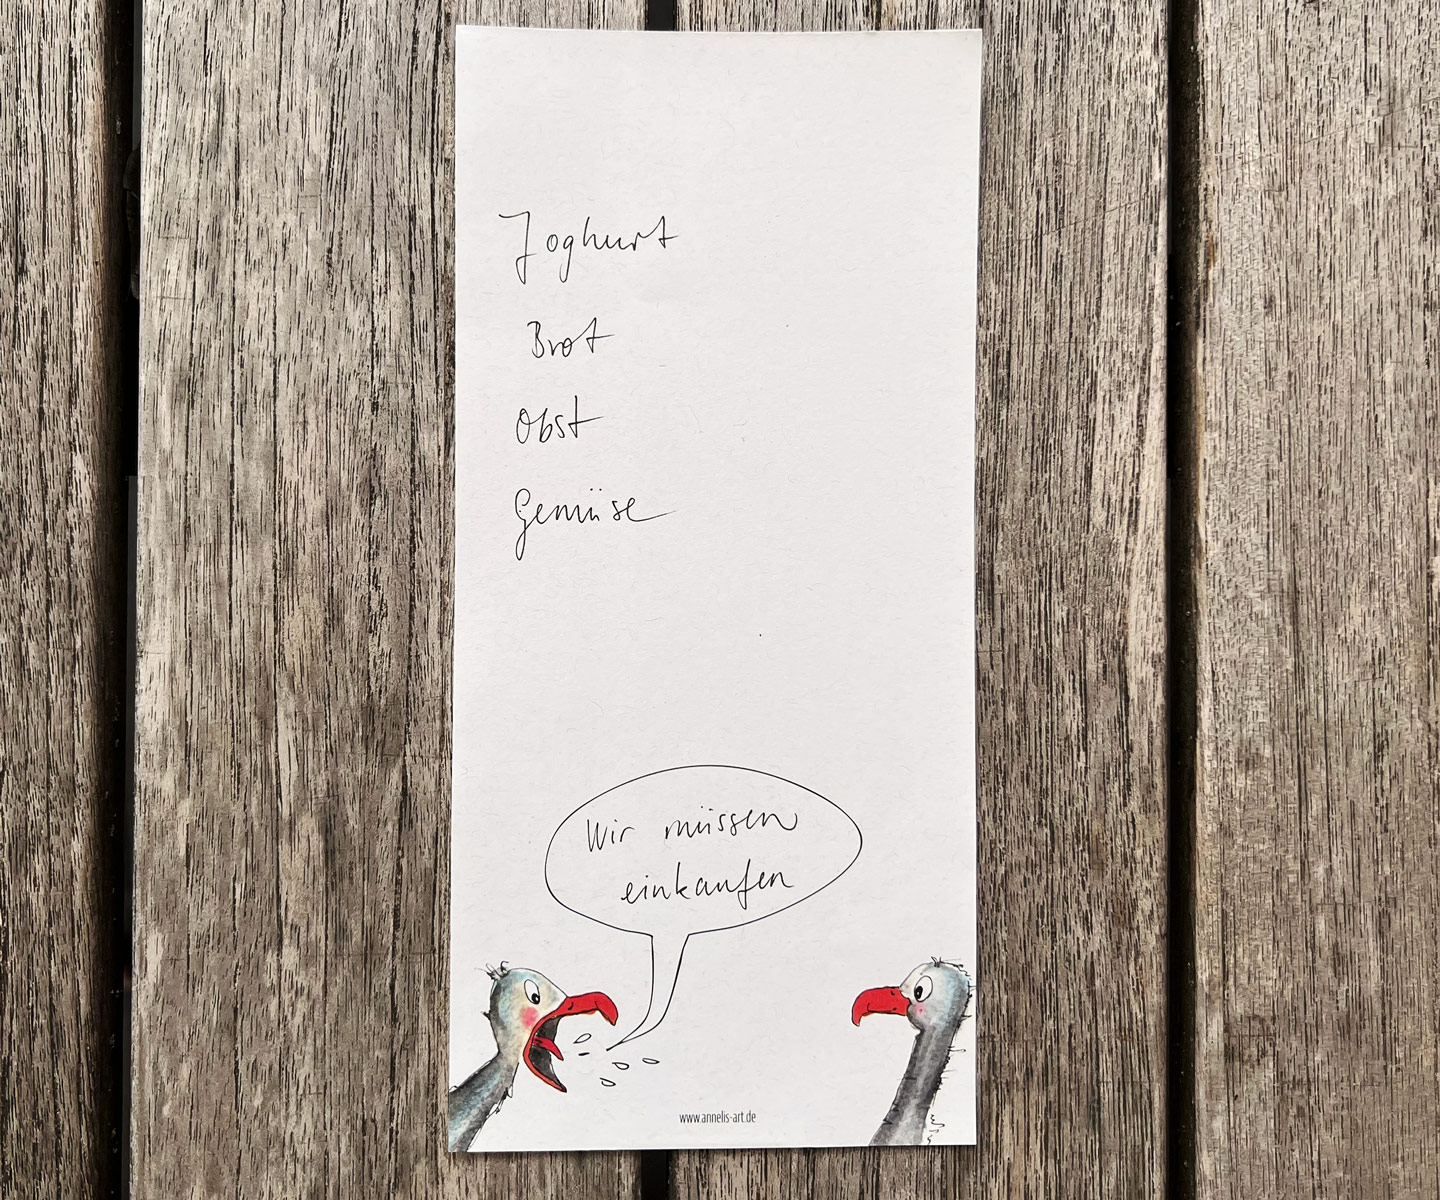 Joghurt
Brot
Obst
Gemüse
Wir müssen
einkaufen
www.annelis-art.de